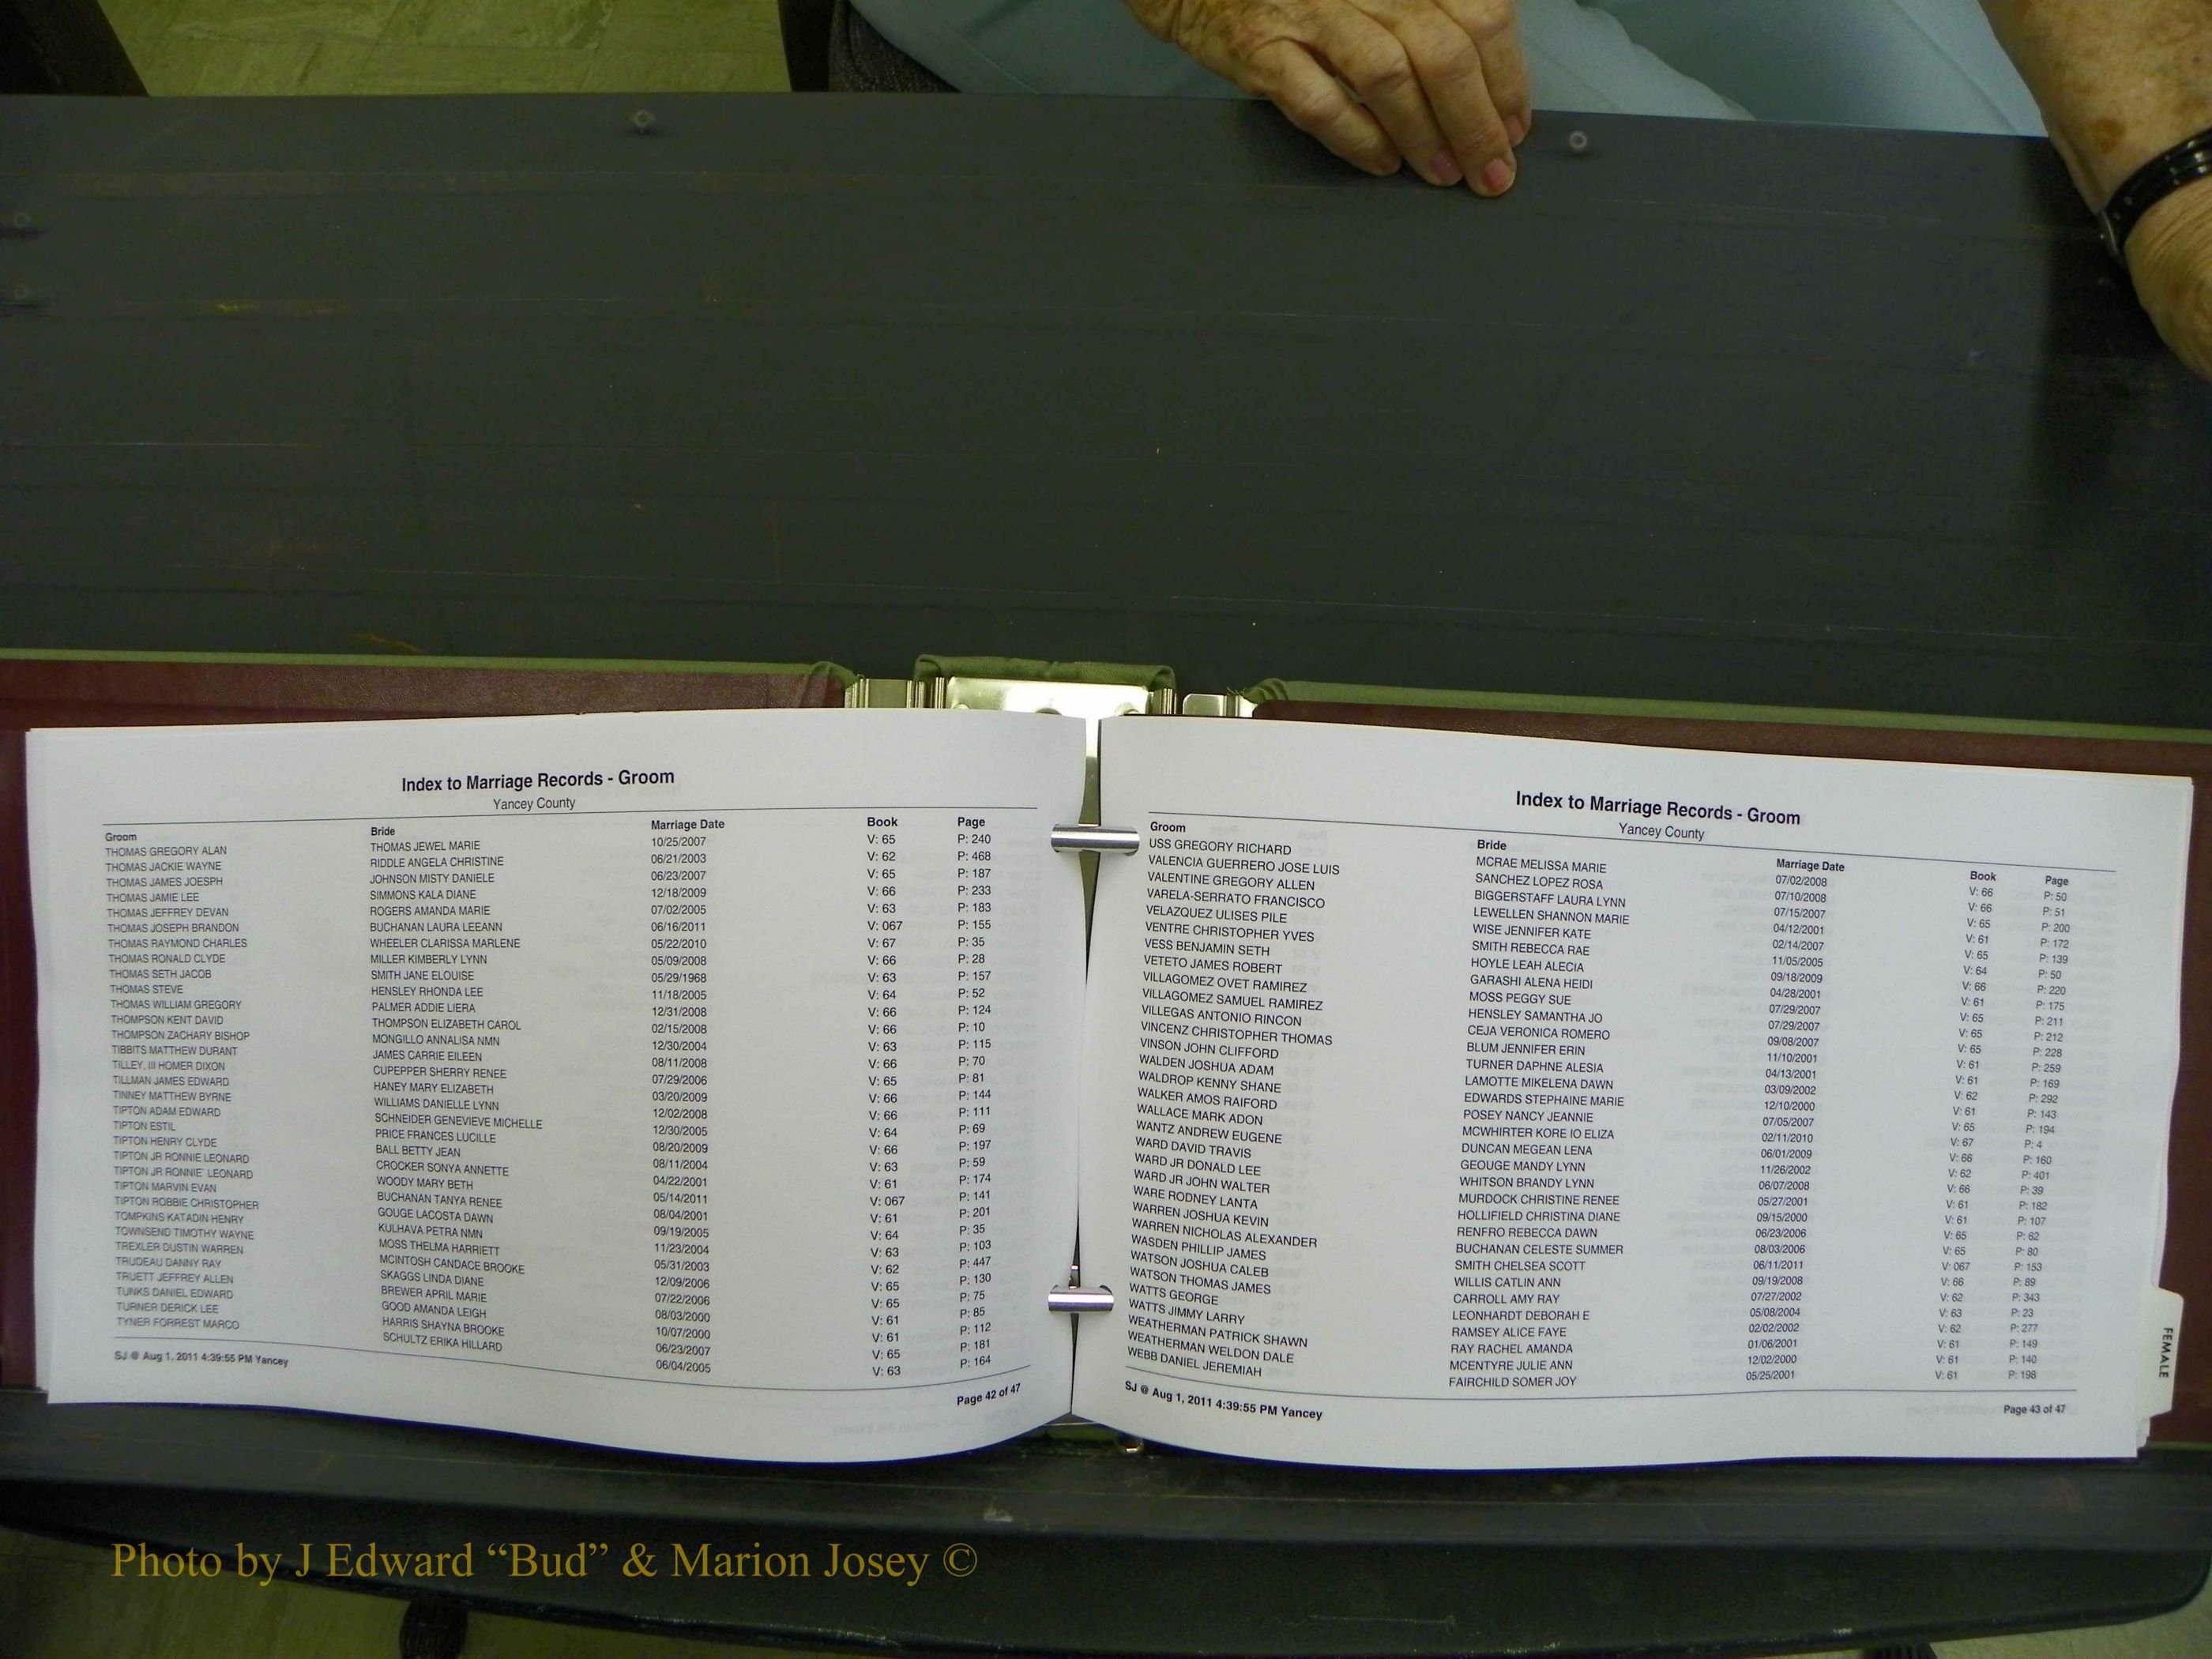 Index to Marriage Records - Groom
Yancey County
Groom Bride Marriage Date Book Page
THOMAS GREGORY ALAN THOMAS JEWEL MARIE 10/25/2007 V: 65 P: 240
THOMAS JACKIE WAYNE RIDDLE ANGELA CHRISTINE 06/21/2003 V: 62 P: 468
THOMAS JAMES JOESPH JOHNSON MISTY DANIELE 06/23/2007 V: 65 P: 187
THOMAS JAMIE LEE SIMMONS KALA DIANE 12/18/2009 V: 66 P: 233
THOMAS JEFFREY DEVAN ROGERS AMANDA MARIE 07/02/2005 V: 63 P: 183
THOMAS JOSEPH BRANDON BUCHANAN LAURA LEEANN 06/16/2011 V: 067 P: 155
THOMAS RAYMOND CHARLES WHEELER CLARISSA MARLENE 05/22/2010 V: 67 P: 35
THOMAS RONALD CLYDE MILLER KIMBERLY LYNN 05/09/2008 V: 66 P: 28
THOMAS SETH JACOB SMITH JANE ELOUISE 05/29/1968 V: 63 P: 157
THOMAS STEVE HENSLEY RHONDA LEE 11/18/2005 V: 64 P: 52
THOMAS WILLIAM GREGORY PALMER ADDIE LIERA 12/31/2008 V: 66 P: 124
THOMPSON KENT DAVID THOMPSON ELIZABETH CAROL 02/15/2008 V: 66 P: 10
THOMPSON ZACHARY BISHOP MONGILLO ANNALISA NMN 12/30/2004 V: 63 P: 115
TIBBITS MATTHEW DURANT JAMES CARRIE EILEEN 08/11/2008 V: 66 P: 70
TILLEY, III HOMER DIXON CUPEPPER SHERRY RENEE 07/29/2006 V: 65 P: 81
TILLMAN JAMES EDWARD HANEY MARY ELIZABETH 03/20/2009 V: 66 P: 144
TINNEY MATTHEW BYRNE WILLIAMS DANIELLE LYNN 12/02/2008 V: 66 P: 111
TIPTON ADAM EDWARD SCHNEIDER GENEVIEVE MICHELLE 12/30/2005 V: 64 P: 69
TIPTON ESTIL PRICE FRANCES LUCILLE 08/20/2009 V: 66 P: 197
TIPTON HENRY CLYDE BALL BETTY JEAN 08/11/2004 V: 63 P: 59
TIPTON JR RONNIE LEONARD CROCKER SONYA ANNETTE 04/22/2001 V: 61 P: 174
TIPTON JR RONNIE LEONARD WOODY MARY BETH 05/14/2011 V: 067 P: 141
TIPTON MARVIN EVAN BUCHANAN TANYA RENEE 08/04/2001 V: 61 P: 201
TIPTON ROBBIE CHRISTOPHER GOUGE LACOSTA DAWN 09/19/2005 V: 64 P: 35
TOMPKINS KATADIN HENRY KULHAVA PETRA NMN 11/23/2004 V: 63 P: 103
TOWNSEND TIMOTHY WAYNE MOSS THELMA HARRIETT 05/31/2003 V: 62 P: 447
TREXLER DUSTIN WARREN MCINTOSH CANDACE BROOKE 12/09/2006 V: 65 P: 130
TRUDEAU DANNY RAY SKAGGS LINDA DIANE 07/22/2006 V: 65 P: 75
TRUETT JEFFREY ALLEN BREWER APRIL MARIE 08/03/2000 V: 61 P: 85
TUNKS DANIEL EDWARD GOOD AMANDA LEIGH 10/07/2000 V: 61 P: 112
TURNER DERICK LEE HARRIS SHAYNA BROOKE 06/23/2007 V: 65 P: 181
TYNER FORREST MARCO SCHULTZ ERIKA HILLARD 06/04/2005 V: 63 P: 164
SJ @ Aug 1, 2011 4:39:55 PM Yancey Page 42 of 47
Index to Marriage Records - Groom
Yancey County
Groom Bride Marriage Date Book Page
USS GREGORY RICHARD MCRAE MELISSA MARIE 07/02/2008 V: 66 P: 50
VALENCIA GUERRERO JOSE LUIS SANCHEZ LOPEZ ROSA 07/10/2008 V: 66 P: 51
VALENTINE GREGORY ALLEN BIGGERSTAFF LAURA LYNN 07/15/2007 V: 65 P: 200
VARELA-SERRATO FRANCISCO LEWELLEN SHANNON MARIE 04/12/2001 V: 61 P: 172
VELAZQUEZ ULISES PILE WISE JENNIFER KATE 02/14/2007 V: 65 P: 139
VENTRE CHRISTOPHER YVES SMITH REBECCA RAE 11/05/2005 V: 64 P: 50
VESS BENJAMIN SETH HOYLE LEAH ALECIA 09/18/2009 V: 66 P: 220
VETETO JAMES ROBERT GARASHI ALENA HEIDI 04/28/2001 V: 61 P: 175
VILLAGOMEZ OVET RAMIREZ MOSS PEGGY SUE 07/29/2007 V: 65 P: 211
VILLAGOMEZ SAMUEL RAMIREZ HENSLEY SAMANTHA JO 07/29/2007 V: 65 P: 212
VILLEGAS ANTONIO RINCON CEJA VERONICA ROMERO 09/08/2007 V: 65 P: 228
VINCENZ CHRISTOPHER THOMAS BLUM JENNIFER ERIN 11/10/2001 V: 61 P: 259
VINSON JOHN CLIFFORD TURNER DAPHNE ALESIA 04/13/2001 V: 61 P: 169
WALDEN JOSHUA ADAM LAMOTTE MIKELENA DAWN 03/09/2002 V: 62 P: 292
WALDROP KENNY SHANE EDWARDS STEPHAINE MARIE 12/10/2000 V: 61 P: 143
WALKER AMOS RAIFORD POSEY NANCY JEANNIE 07/05/2007 V: 65 P: 194
WALLACE MARK ADON MCWHIRTER KORE IO ELIZA 02/11/2010 V: 67 P: 4
WANTZ ANDREW EUGENE DUNCAN MEGEAN LENA 06/01/2009 V: 66 P: 160
WARD DAVID TRAVIS GEOUGE MANDY LYNN 11/26/2002 V: 62 P: 401
WARD JR DONALD LEE WHITSON BRANDY LYNN 06/07/2008 V: 66 P: 39
WARD JR JOHN WALTER MURDOCK CHRISTINE RENEE 05/27/2001 V: 61 P: 182
WARE RODNEY LANTA HOLLIFIELD CHRISTINA DIANE 09/15/2000 V: 61 P: 107
WARREN JOSHUA KEVIN RENFRO REBECCA DAWN 06/23/2006 V: 65 P: 62
WARREN NICHOLAS ALEXANDER BUCHANAN CELESTE SUMMER 08/03/2006 V: 65 P: 80
WASDEN PHILLIP JAMES SMITH CHELSEA SCOTT 06/11/2011 V: 067 P: 153
WATSON JOSHUA CALEB WILLIS CATLIN ANN 09/19/2008 V: 66 P: 89
WATSON THOMAS JAMES CARROLL AMY RAY 07/27/2002 V: 62 P: 343
WATTS GEORGE LEONHARDT DEBORAH E 05/08/2004 V: 63 P: 23
WATTS JIMMY LARRY RAMSEY ALICE FAYE 02/02/2002 V: 62 P: 277
WEATHERMAN PATRICK SHAWN RAY RACHEL AMANDA 01/06/2001 V: 61 P: 149
WEATHERMAN WELDON DALE MCENTYRE JULIE ANN 12/02/2000 V: 61 P: 140
WEBB DANIEL JEREMIAH FAIRCHILD SOMER JOY 05/25/2001 V: 61 P: 198
SJ @ Aug 1, 2011 4:39:55 PM Yancey Page 43 of 47
FEMALE
Photo by J Edward “Bud” & Marion Josey ©